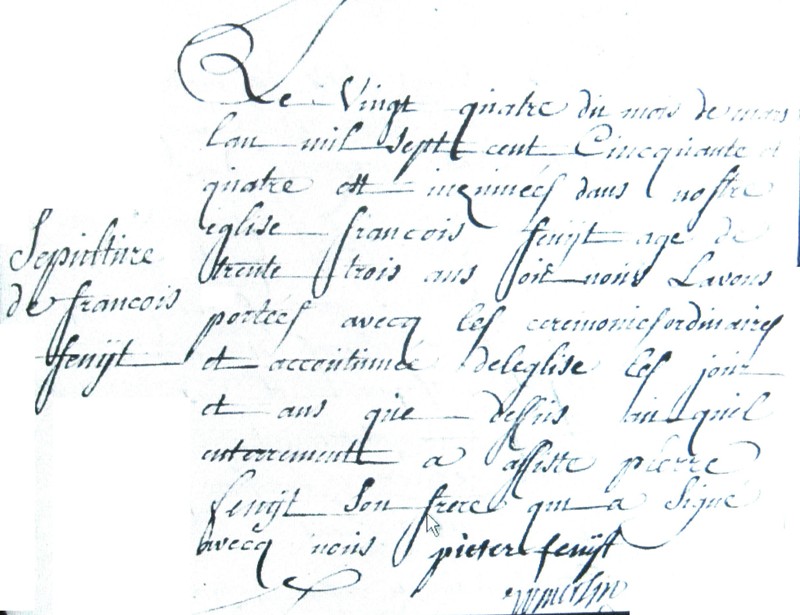 Le Vingt quatre du mois de mars
lan mil sept cent Cincquante et
quatre est inhumées dans nostre
eglise francois fenijt age de
Sepulture
trente trois ans oiƭ nous Lavons
de francois
portées avecq les ceremonies ordinaires
fenijt
et accoutumée deleglise les jour
et ans que dessus au quel
enterrement a assiste pierre
fenijt son frere qui a Signé
avecq nous pieter fenijt